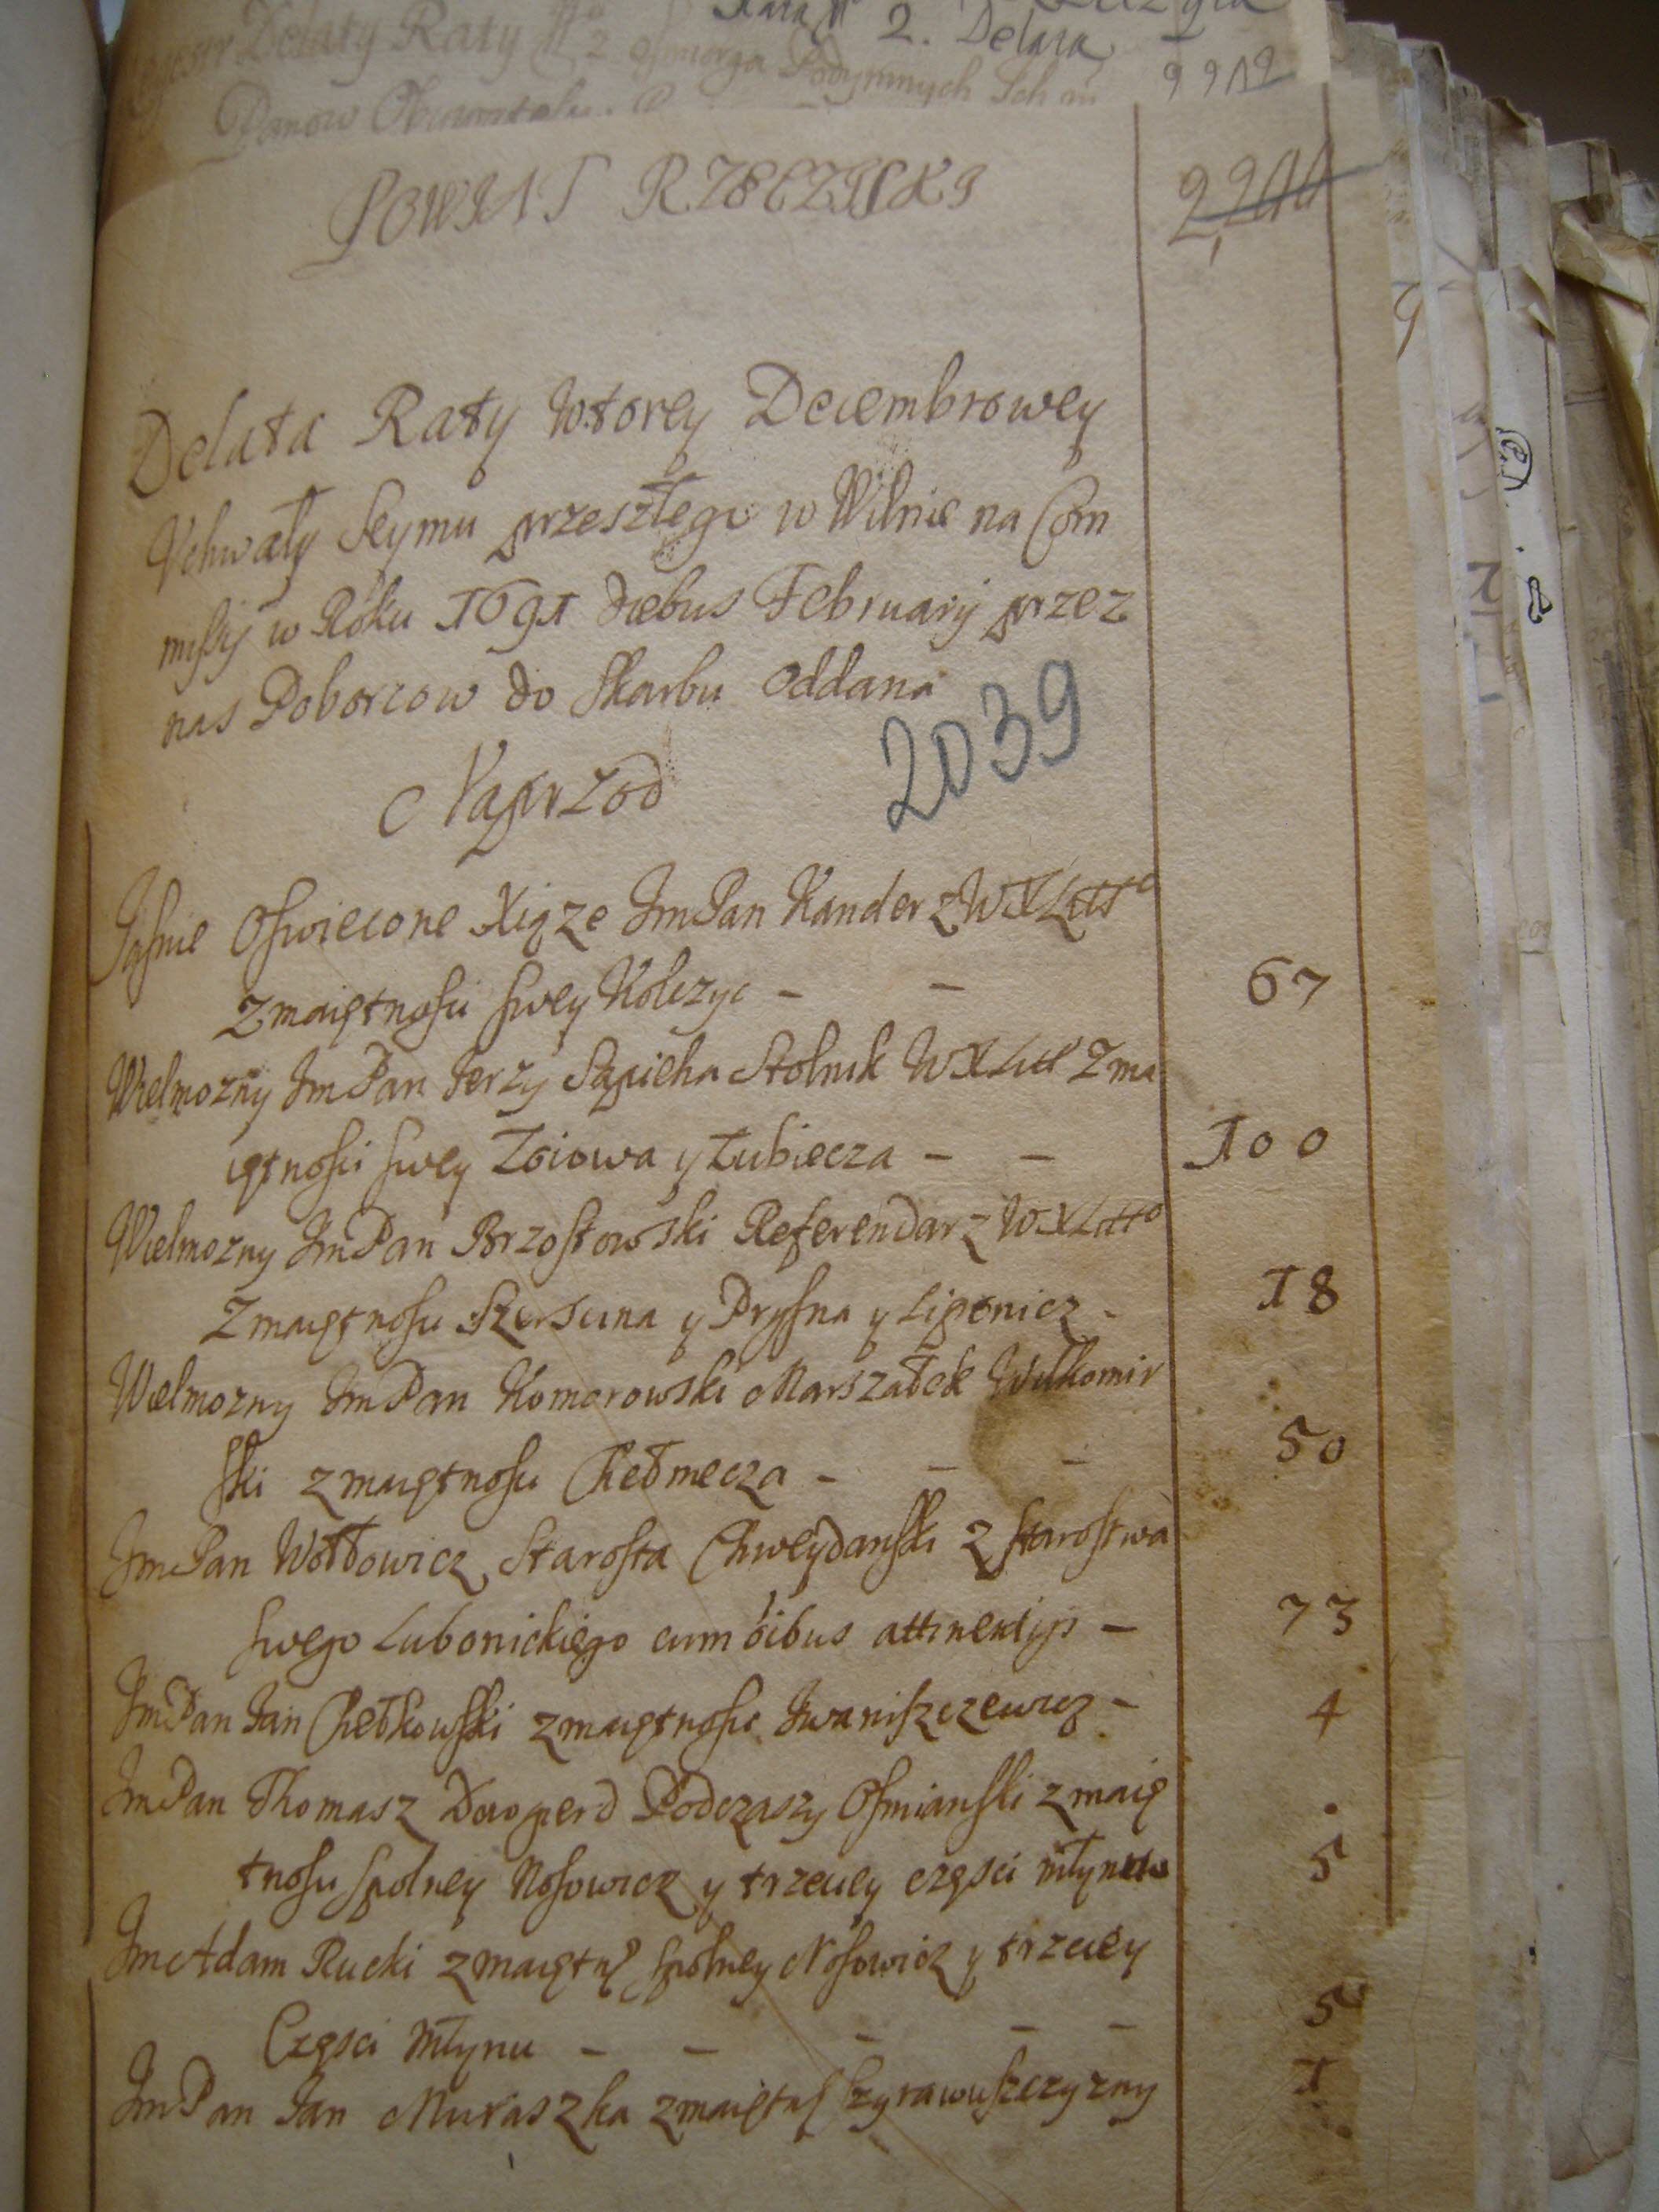 Rata 2. Delata
Delaty Raty 2 Podymnych Ich m
Panow
POWIAT RZECZYCKI
Delata Raty wtorey Decembrowey
Vchwały Seymu przeszłego w Wilnie na Com
missÿ w Roku 1691 diebus Februarÿ przez
nas Poborcow do Skarbu oddana
2039
Naprzod
Jasnie Oswiecone Xiąze JmPan Kanclerz WXLitto
z maiętnosci swey Kolczyc - - 67
Wielmozny JmPan Jerzy Sapieha Stolnik WXLitt z ma
iętnosci swey Łoiowa y Łubiecza - - 100
Wielmozny JmPan Brzostowski Referendarz WXLitto
z maiętnosci y Prysna y Lipinicz - 18
Wielmozny JmPan Komorowski Marszałek Wilkomir
ski z maiętnosci Chełmecza - - - 50
JmPan Wołłowicz Starosta Chweydanski z starostwa
swego Lubonickiego cum oibus attinentijs - 73
JmPan Jan Chełkowski z maiętnosci Iwaniszczewicz - 4
JmPan Thomasz Podczaszy Osmianski z maię
tnosci spolney Nosowicz y trzeciey częsci młynu 5
Jm Adam Rucki z maiętn spolney Nosowicz y trzeciey
Częsci Młynu - - - - - 5
JmPan Jan Muraszka z maiętn 1